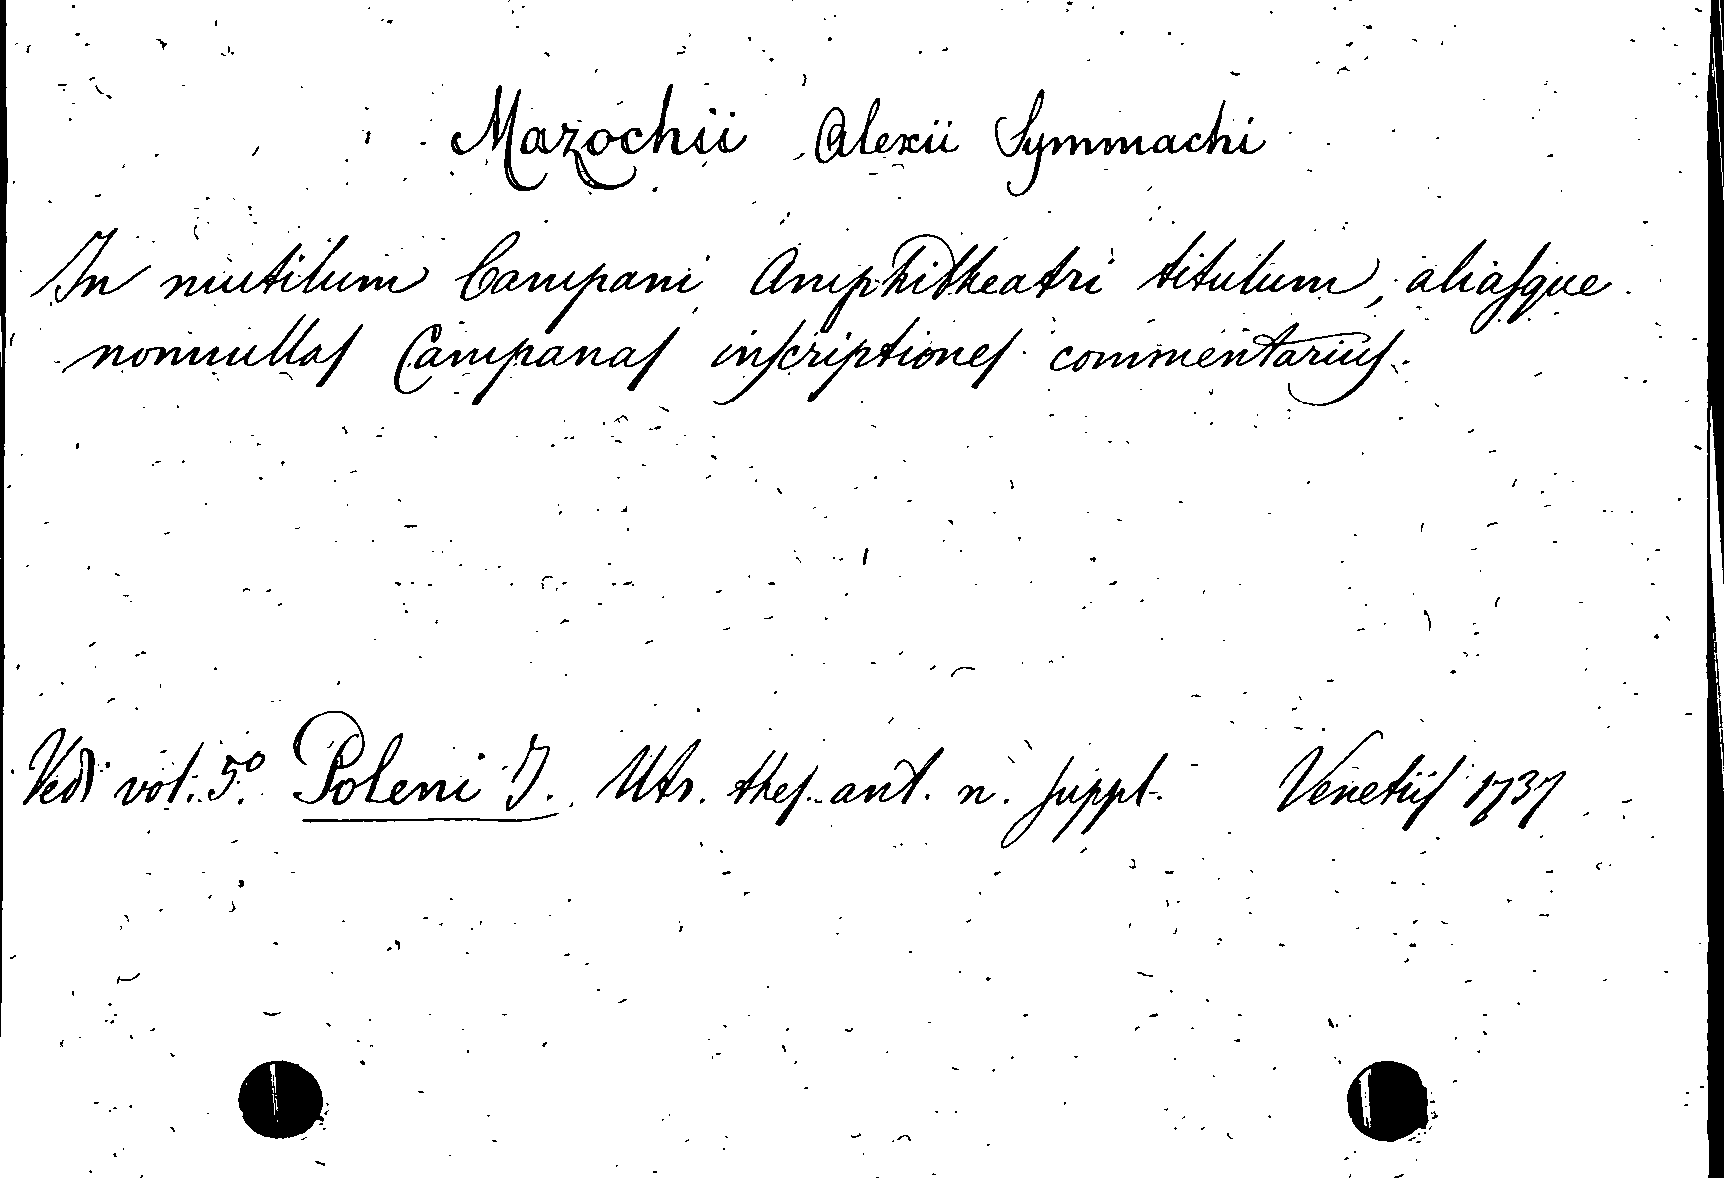 Mazochii Alexii Symmachi
In mutilum Campani Amphitheatri titulum, aliasque
nonnullas Campanas inscriptiones commentarius.
Vedi vol. 5º Poleni J. Utr. thes. ant. n. suppl. Venetiis 1737